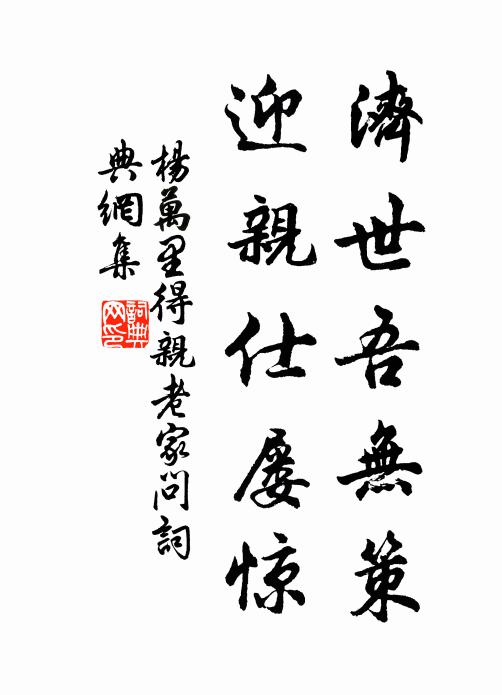 濟世吾無策
迎親仕屡惊
楊萬里得親老家問詞
典網集
詞典
网印